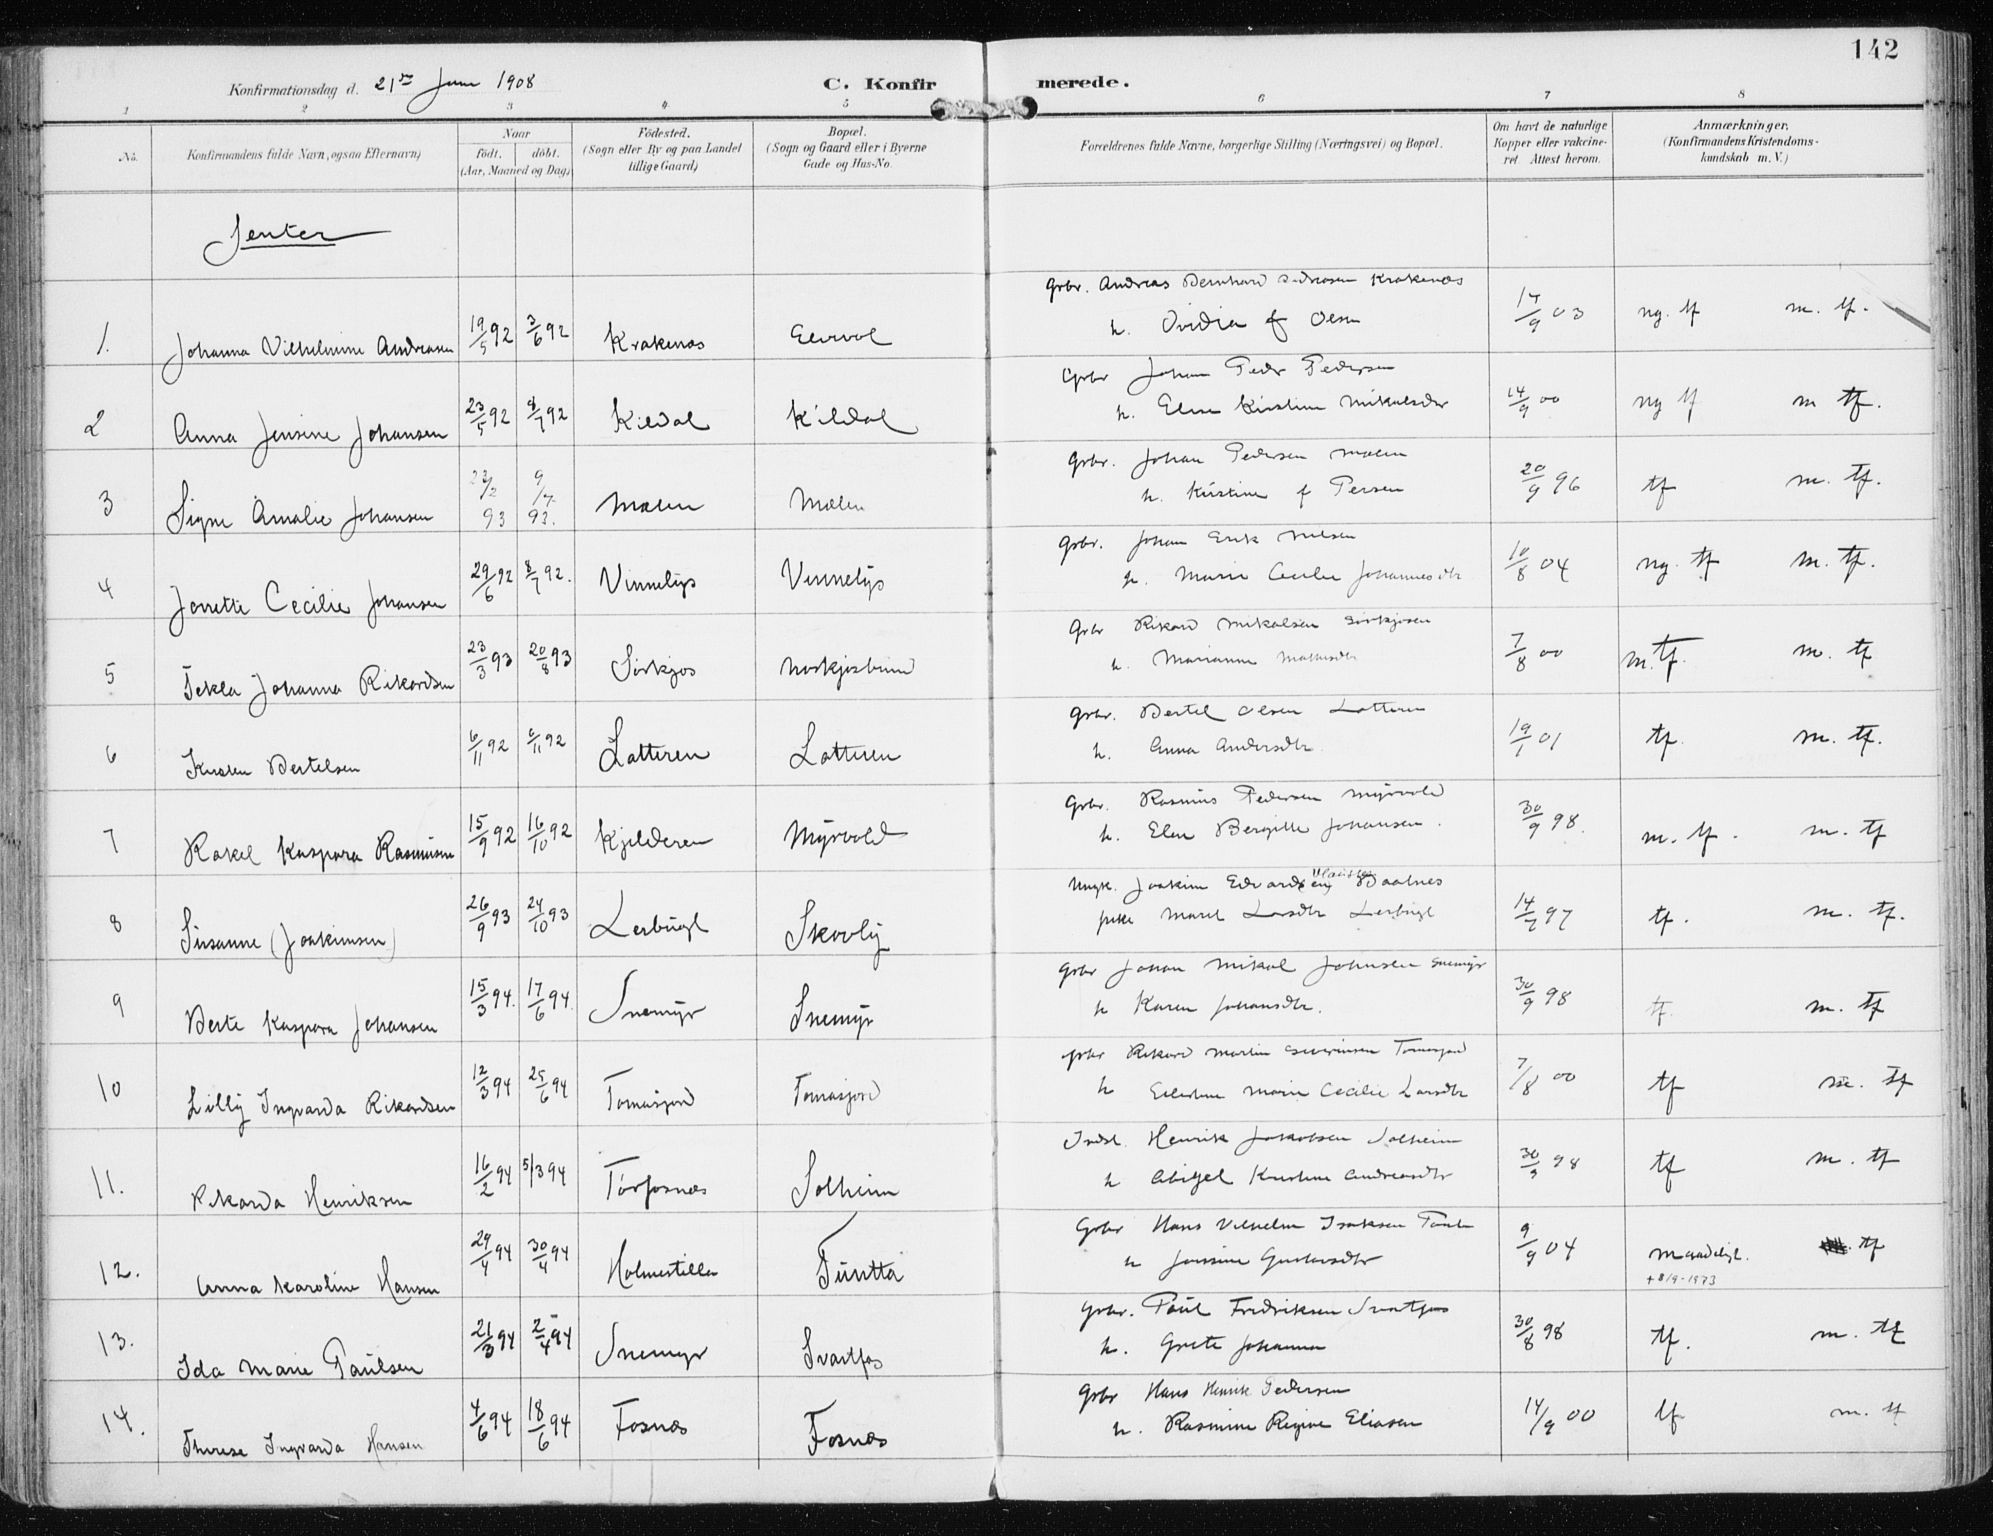 142
Konfirmationsdag d. 21de Juni 1908 C. Konfirmerede.
1 2 3 4 5 6 7 8
No. Konfirmandens fulde Navn, ogsaa Efternavn) Naar født. døbt. (Aar, Maaned og Dag) Fødested. (Sogn eller By og paa Landet tillige Gaard) Bopæl. (Sogn og Gaard eller i Byerne Gade og Hus-No. Forældrenes fulde Navne, borgerlige Stilling (Næringsvei) og Bopæl. Om havt de naturlige Kopper eller vakcineret Attest herom. Anmærkninger. (Konfirmandens Kristendomskundskab m. V.)
Jenter
Grbr. Andreas Bernhard Andreasen Krakenæs
1. Johanna Vilhelmine Andreasen 19/5 92 3/6 92 Krakenæs Elvevol h. Ovidia f Olsen 17/9 03 ng. tf m. tf.
Grbr Johan Peder Pedersen
2 Anna Jensine Johansen 23/5 92 8/7 92 Kildal Kildal h. Elen Kirstine Mikalsdtr 14/9 00 ng tf m tf.
Grbr. Johan Pedersen Mælen
3 Signe Amalie Johansen 23/2 93 9/7 93. Mælen Mælen h. Kristine f Persen 20/9 96 tf m. tf.
Grbr. Johan Erik Nilsen
4 Jonette Cecilie Johansen 29/6 92 8/7 92. Vinnelys Vinnelys h. Marie Cecilie Johannesdtr 10/8 04 ng. tf m. tf.
Grbr Rikard Mikalsen Sørkjosen
5 Tekla Johanna Rikardsen 23/3 93 20/8 93 Sørkjos Norkjosbund h. Marianne 7/8 00 m. tf. m. tf
Grbr. Bertel Olsen Latteren
6 Kirsten Bertelsen 6/11 92 6/11 92 Latteren Latteren h. Anna Andersdtr. 19/1 01 tf. m. tf.
Grbr. Rasmus Pedersen Myrvold
7 Rakel Kaspara Rasmusen 15/9 92 16/10 92 Kjelderen Myrvold h. Elen Bergitte Johansen. 30/9 98. m. tf. m. tf
Ungk. Joakim Edvard
8 Susanne (Joakimsen) 26/9 93 24/10 93 Lerbugt Skovly pike Maret Larsdtr Lerbugt 14/7 97 tf. m. tf.
Grbr Johan Mikal Johnsen Snemyr
9 Berte Kaspara Johansen 15/3 94. 17/6 94. Snemyr Snemyr h Karen Johansdtr. 30/9 98 tf. m. tf
Grbr Rikard Martin Severinsen Tomasjord
10 Lilly Ingvarda Rikardsen 12/3 94 25/6 94 Tomasjord Tomasjord h Marie Cecilie Larsdtr 7/8 00 tf m. tf
Indst. Henrik Jakobsen Solheim
11. Rikarda Henriksen 16/2 94 5/3 94 Torfosnæs Solheim h Abigel Kristine Andreasdtr 30/9 98 tf m. tf
Grbr Hans Vilhelm Isaksen
12. Anna Karoline Hansen 29/4 94 30/4 94 Holmestilla Tuntta h Jensine Gustavsdtr 9/9 04 Maadelig. tf
+ 8/9-1973
Grbr. Paul Fredriksen Svartfos
13. Ida Marie Paulsen 21/3 94 2/4 94 Snemyr Svartfos h. Grete Johanna 30/8 98 tf. m. tf
Grbr Hans Henrik Pedersen
14. Therese Ingvarda Hansen 4/6 94 18/6 94 Fosnæs Fosnæs h. Rasmine Regine Eliasen 14/9 00 tf m. tf